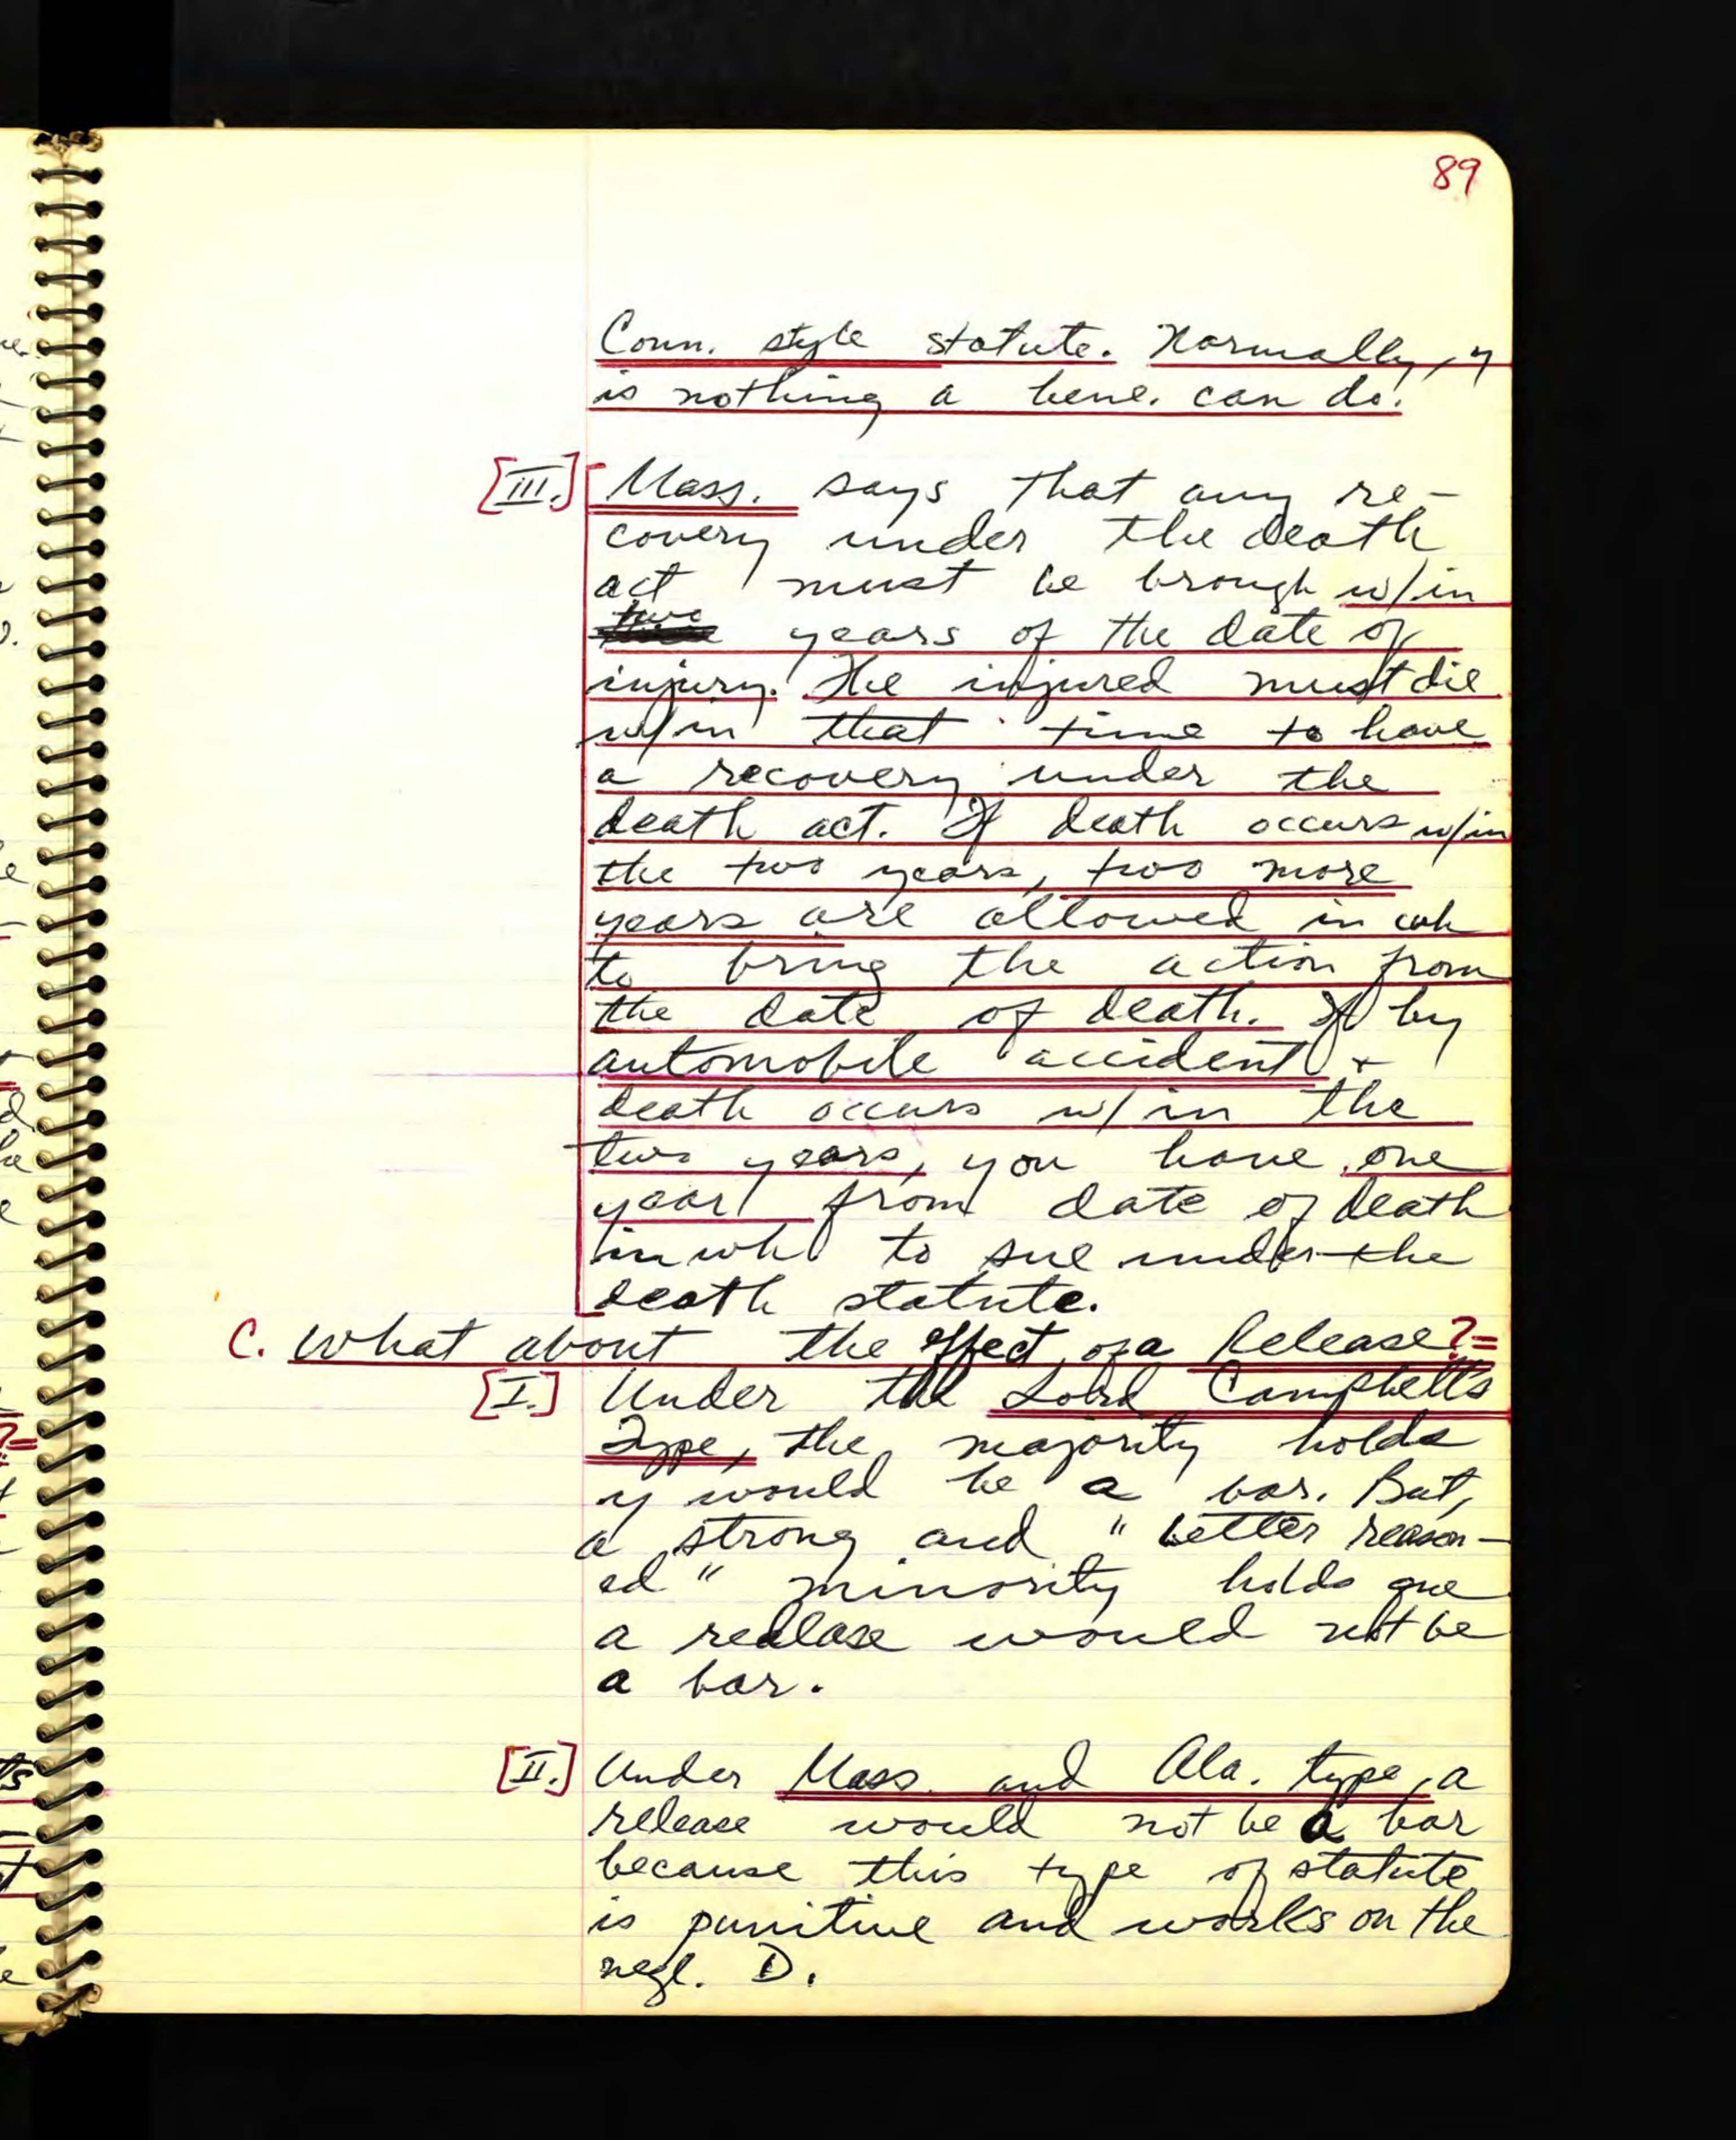 89
Conn. style statute. Normally, y
is nothing a bene. can do.
[III.] Mass. says that any re-
covery under the death
act must be brough w/in
two years of the date of
injury. The injured must die
w/in that time to have
a recovery under the
death act. If death occurs w/in
the two years, two more
years are allowed in wh
to bring the action from
the date of death. If by
automobile accident +
death occurs w/in the
two years, you have one
year from date of death
in wh to sue under the
death statute.
C. What about the effect of a Release?=
[I.] Under the Lord Campbell's
Type, the majority holds
y would be a bar. But,
a strong and "better reason-
ed" minority holds que
a realase would not be
a bar.
[II.] Under Mass. and Ala. type, a
release would not be a bar
because this type of statute
is punitive and works on the
negl. D.